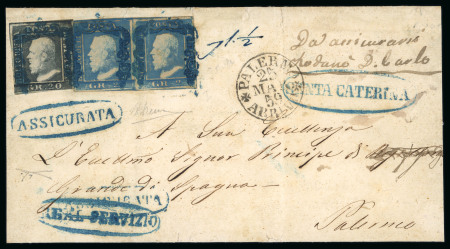 GR. 20 GR. GR.
1½
PALERMO
24
MAG
59
ARRIVO
Da assicurarsi
SANTA CATERINA
ASSICURATA
A Sua Eccellenza
L'Eccellmo Signor Principe di
Grande di Spagna
ASSICURATA
REAL SERVIZIO
Palermo